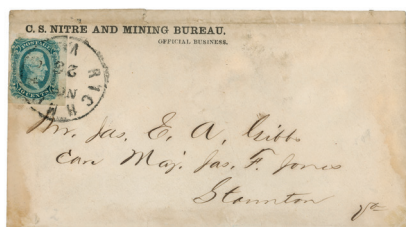 C. S. NITRE AND MINING BUREAU.
OFFICIAL BUSINESS.
RICH
Mr. Jas. E. A. Gibbs
Care Maj. Jas. F. Jones
Staunton
Va